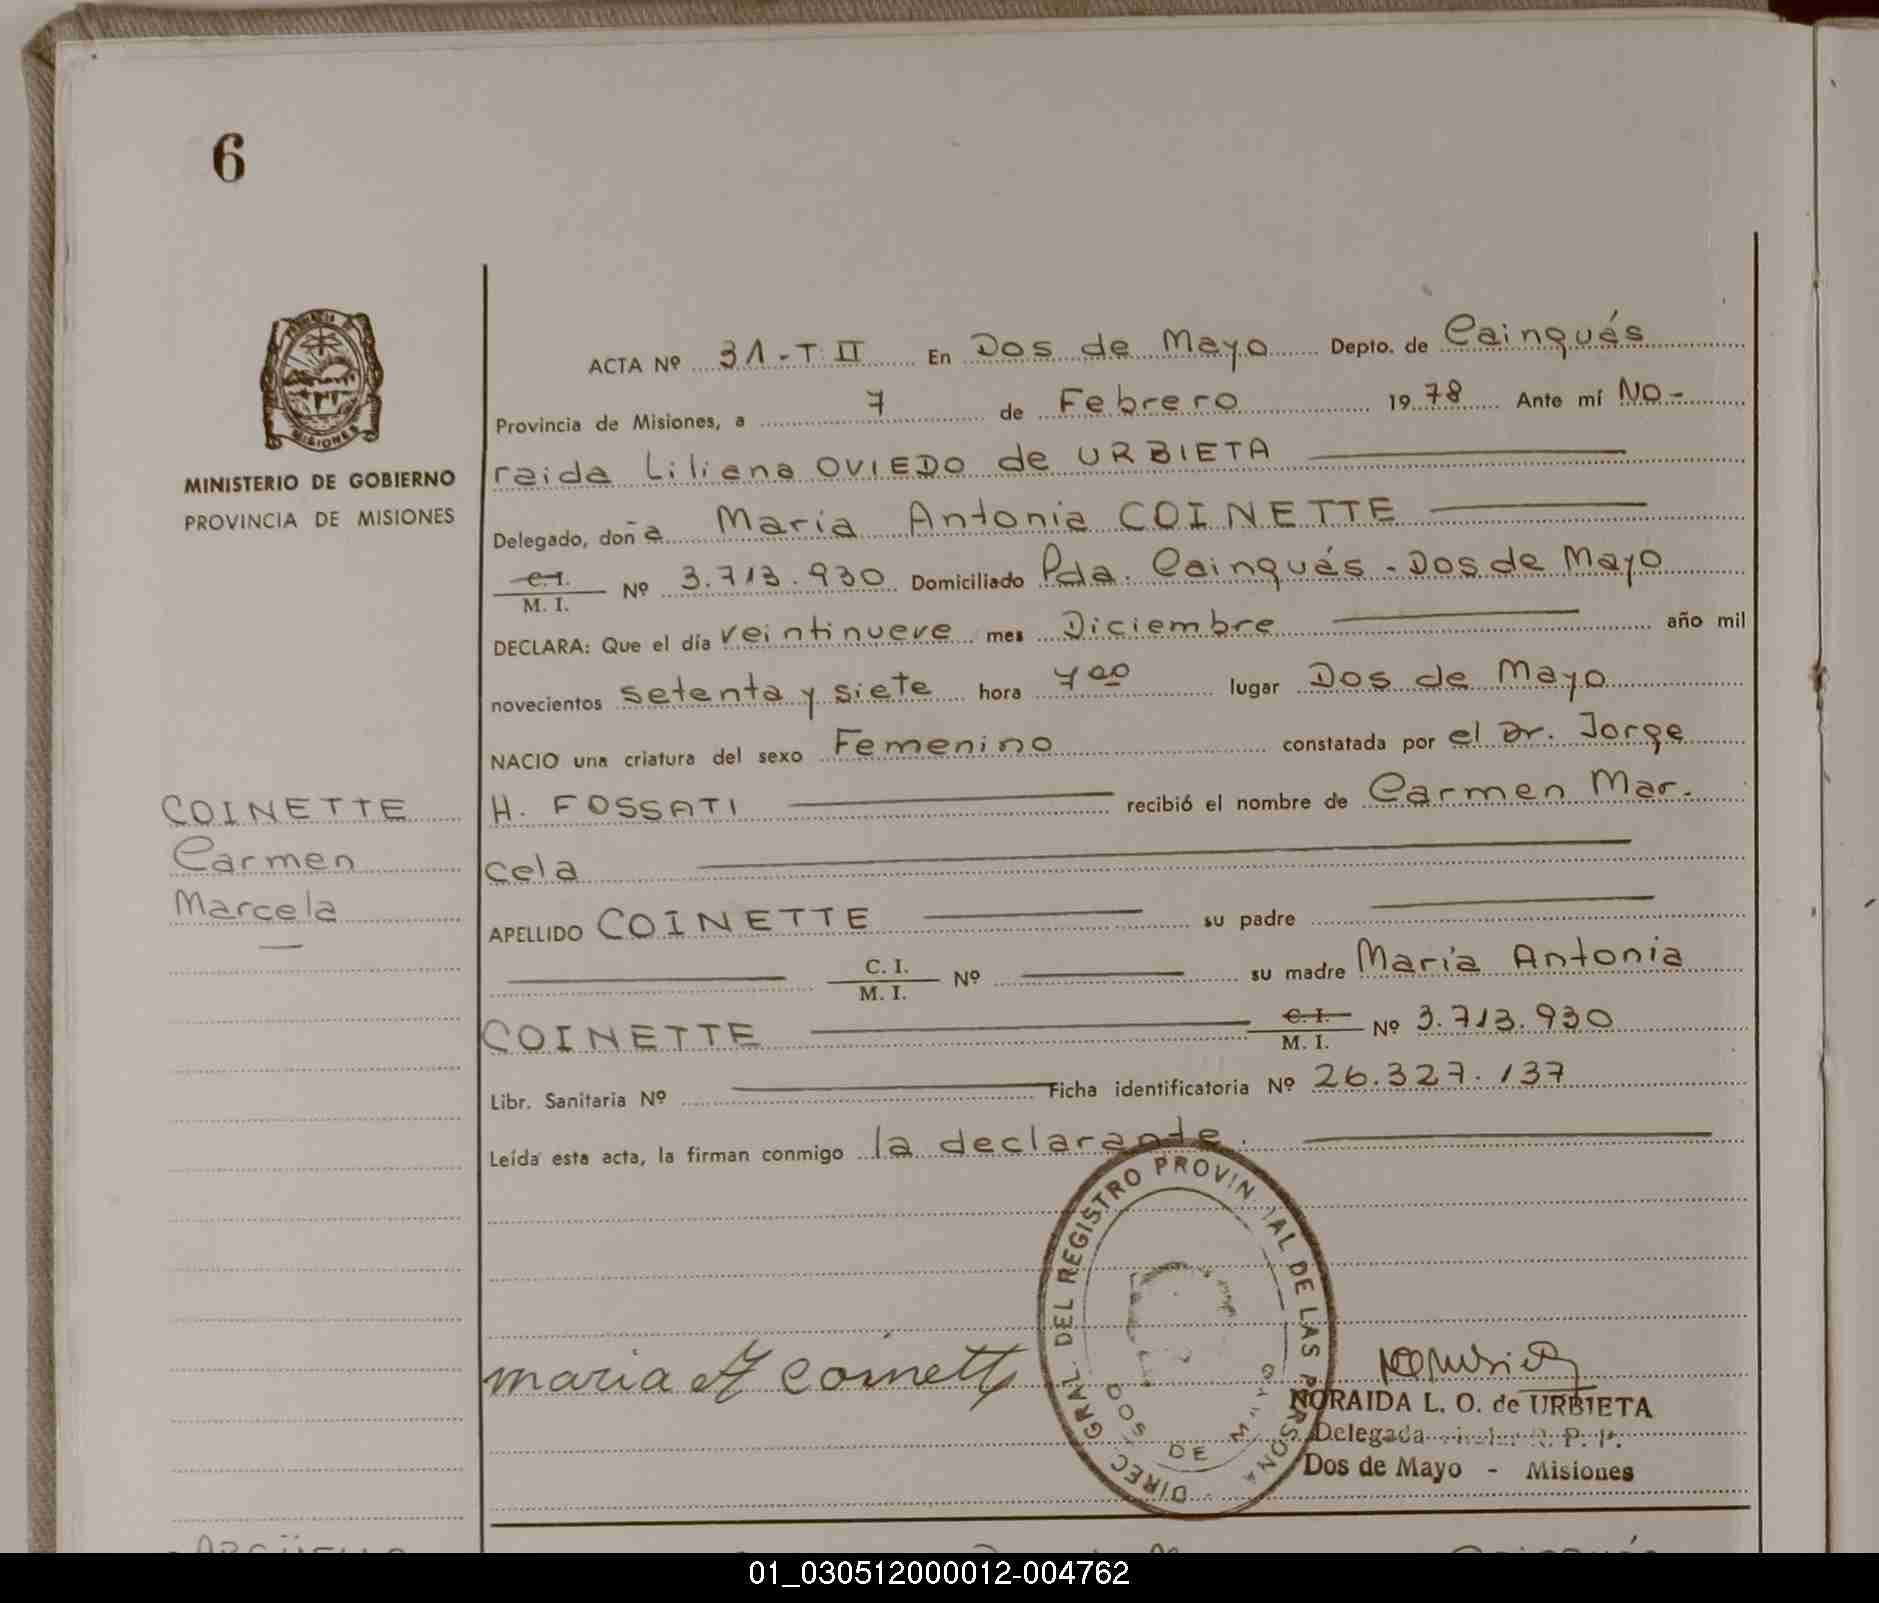 6
MINISTERIO DE GOBIERNO
PROVINCIA DE MISIONES
ACTA Nº 31-T.II En Dos de Mayo Depto. de Cainguás
Provincia de Misiones, a 7 de Febrero 1978 Ante mí No-
raida Liliana OVIEDO de URBIETA
Delegado, doña María Antonia COINETTE
C.I. / M. I. Nº 3.713.930 Domiciliado Pda. Cainguás - Dos de Mayo
DECLARA: Que el día veintinueve mes Diciembre año mil
novecientos setenta y siete hora 4 00 lugar Dos de Mayo
NACIO una criatura del sexo Femenino constatada por el Dr. Jorge
H. FOSSATI recibió el nombre de Carmen Mar-
cela
COINETTE
Carmen
Marcela
APELLIDO COINETTE su padre
C. I. / M. I. Nº su madre María Antonia
COINETTE C. I. / M. I. Nº 3.713.930
Libr. Sanitaria Nº Ficha identificatoria Nº 26.327.137
Leída esta acta, la firman conmigo la declarante.
DIREC GRAL. DEL REGISTRO PROVIN IAL DE LAS PERSONA
DOS DE
maria A coinett
NORAIDA L. O. de URBIETA
Delegada R. P. P.
Dos de Mayo - Misiones
01_030512000012-004762